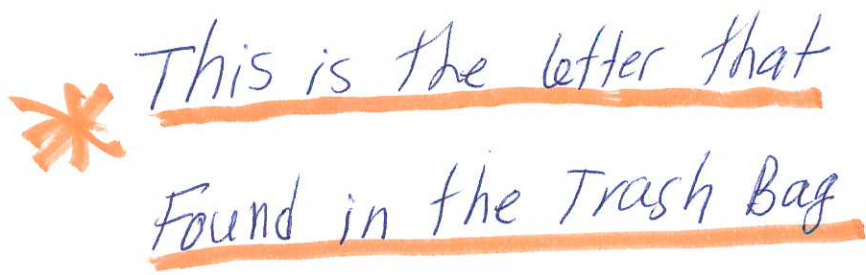 This is the letter that
Found in the Trash Bag